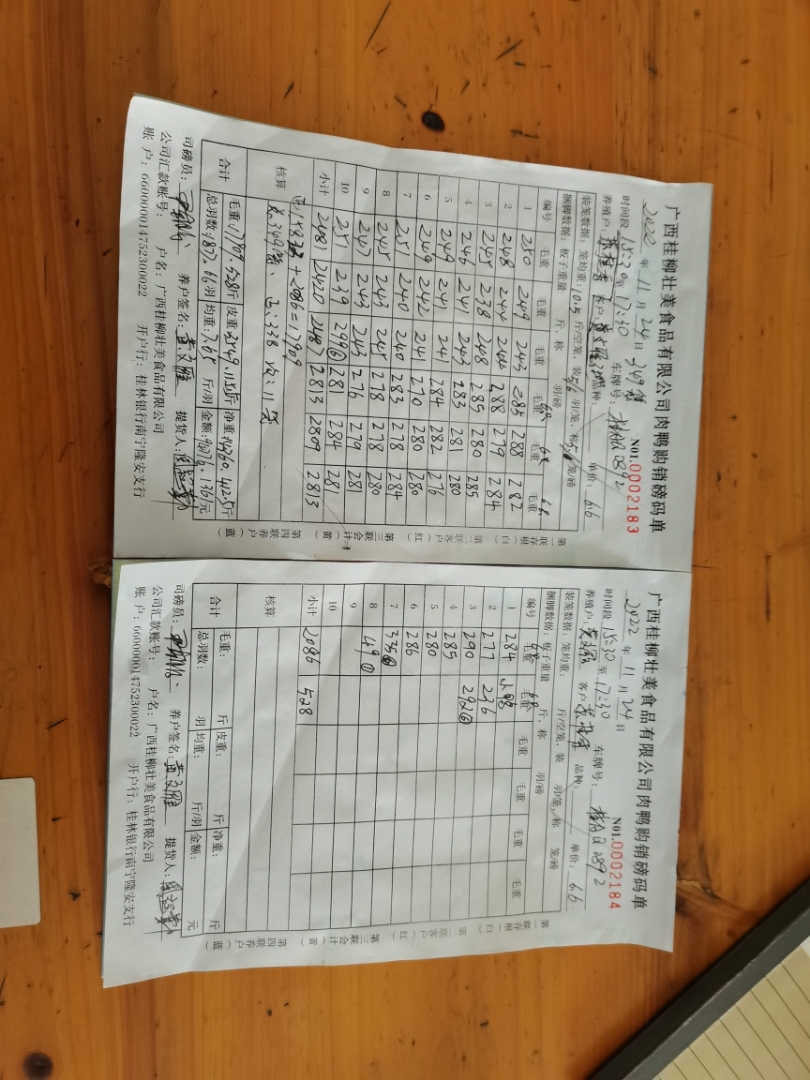 广西桂柳壮美食品有限公司肉鸭购销磅码单
NO1.0002183
2022年11月24日 349箱
时间段 15:30至17:30 车牌号:
养殖户: 客户: 品种: 单价: 6.6
装笼数据:笼均重:10.5斤/空笼,装5/6羽/笼,称 笼/磅
捆脚数据:板子重量 斤,称 羽/磅
编号 毛重 毛重 毛重 毛重 毛重 毛重
1 250 249 243 285 288 282
2 248 244 244 288 279 284
3 245 238 248 285 280 285
4 246 241 243 283 281 280
5 249 241 241 284 282 276
6 249 242 241 270 280 280
7 251 240 240 283 278 284
8 245 243 245 278 278 280
9 247 243 243 276 279 281
10 251 239 299⑥ 281 284 281
小计 2481 2420 2487 2813 2809 2813
核算 +2086=17909
349 338 次:11只
合计 毛重:斤 皮重:斤 净重:斤
总羽数:羽 均重:7.65斤/羽 金额:元
司磅员: 养户签名: 提货人:
公司汇款账号: 户名:广西桂柳壮美食品有限公司
账户:660000014752300022 开户行:桂林银行南宁隆安支行
第一联存根(白) 第二联客户(红) 第三联会计(黄) 第四联养户(蓝)
广西桂柳壮美食品有限公司肉鸭购销磅码单
NO1.0002184
2022年11月24日
时间段 15:30至17:30 车牌号:
养殖户: 客户: 品种: 单价: 6.6
装笼数据:笼均重: 斤/空笼,装 羽/笼,称 笼/磅
捆脚数据:板子重量 斤,称 羽/磅
编号 毛重 毛重 毛重 毛重 毛重 毛重
1 284
2 277 236
3 290 292⑥
4 285
5 280
6 286
7 335
8 49①
9
10
小计 2086 528
核算
合计 毛重: 斤 皮重: 斤 净重: 斤
总羽数: 羽 均重: 斤/羽 金额: 元
司磅员: 养户签名: 提货人:
公司汇款账号: 户名:广西桂柳壮美食品有限公司
账户:660000014752300022 开户行:桂林银行南宁隆安支行
第一联存根(白) 第二联客户(红) 第三联会计(黄) 第四联养户(蓝)